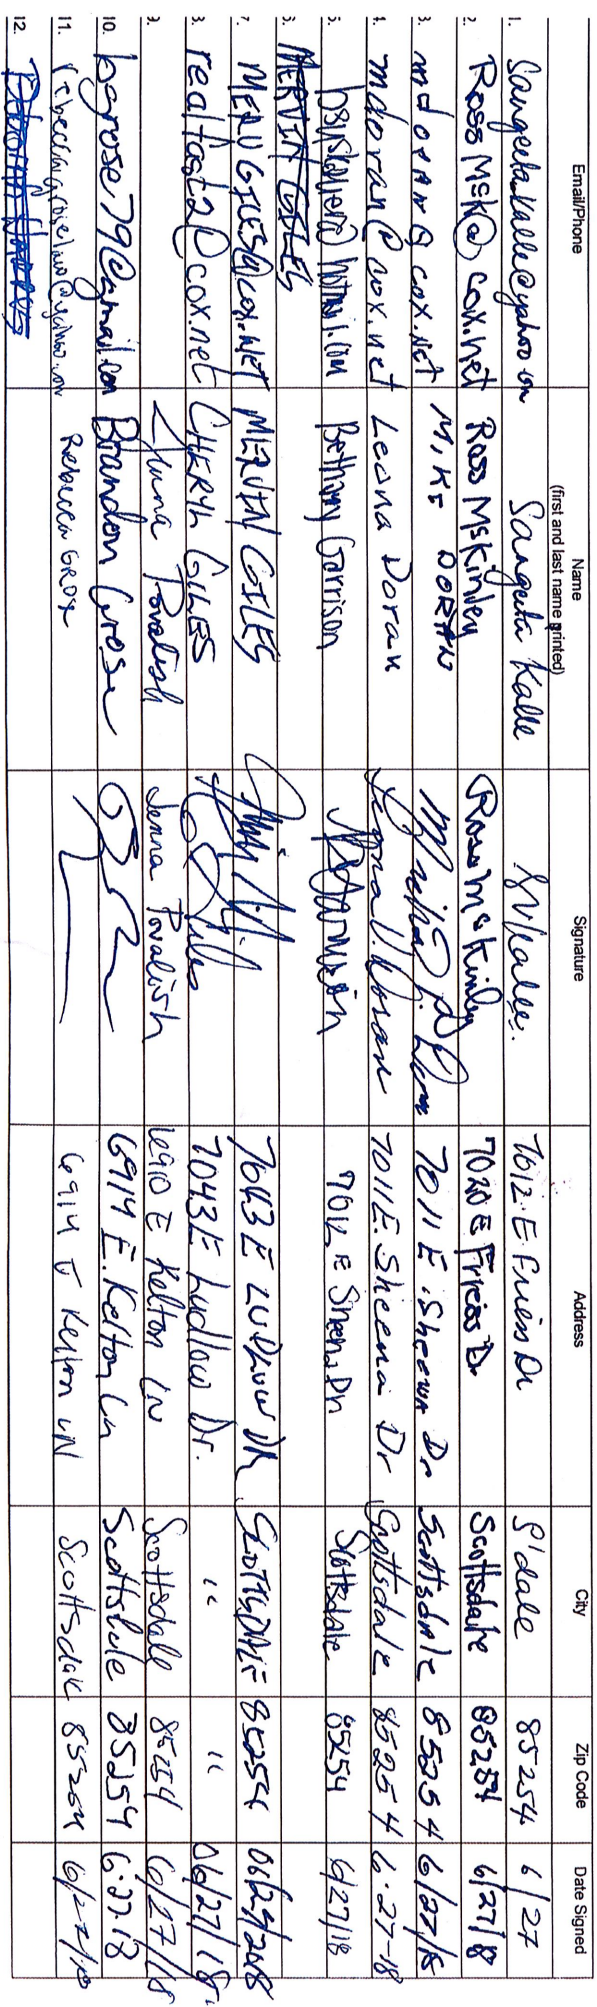 Email/Phone Name (first and last name printed) Signature Address City Zip Code Date Signed
1. Sangeeta.kalle@yahoo.com Sangeeta Kalle SVKalle. 7012. E Friess Dr S'dale 85254 6/27
2. RossMcK@cox.net Ross McKinley Ross McKinley 7020 E Friess Dr Scottsdale 85254 6/27/18
3. mdoran8cox.net MIKE DORAN 7011 E. Sheena Dr Scottsdale 85254 6/27/18
4. mdoran@cox.net Leona Doran Leona V. Doran 7011 E. Sheena Dr Scottsdale 85254 6-27-18
5. hotmail.com Bethany Garrison 7012 E Sheena Dr Scottsdale 85254 6/27/18
6. MERVIN GILES
7. MERVGILES@cox.NET MERVIN GILES 7043 E LUDLOW DR SCOTTSDALE 85254 06/27/2018
8. realfast2@cox.net CHERYL GILES 7043 E Ludlow Dr. " " 06/27/18
9. Jenna Povalish Jenna Povalish 6910 E Kelton LN Scottsdale 85254 6/27/18
10. bgrose79@gmail.com Brandon Grose 6914 E. Kelton Ln Scottsdale 85254 6.27.18
11. rebeccagroselaw@yahoo.com Rebecca Grose 6914 E Kelton LN Scottsdale 85254 6/27/18
12.